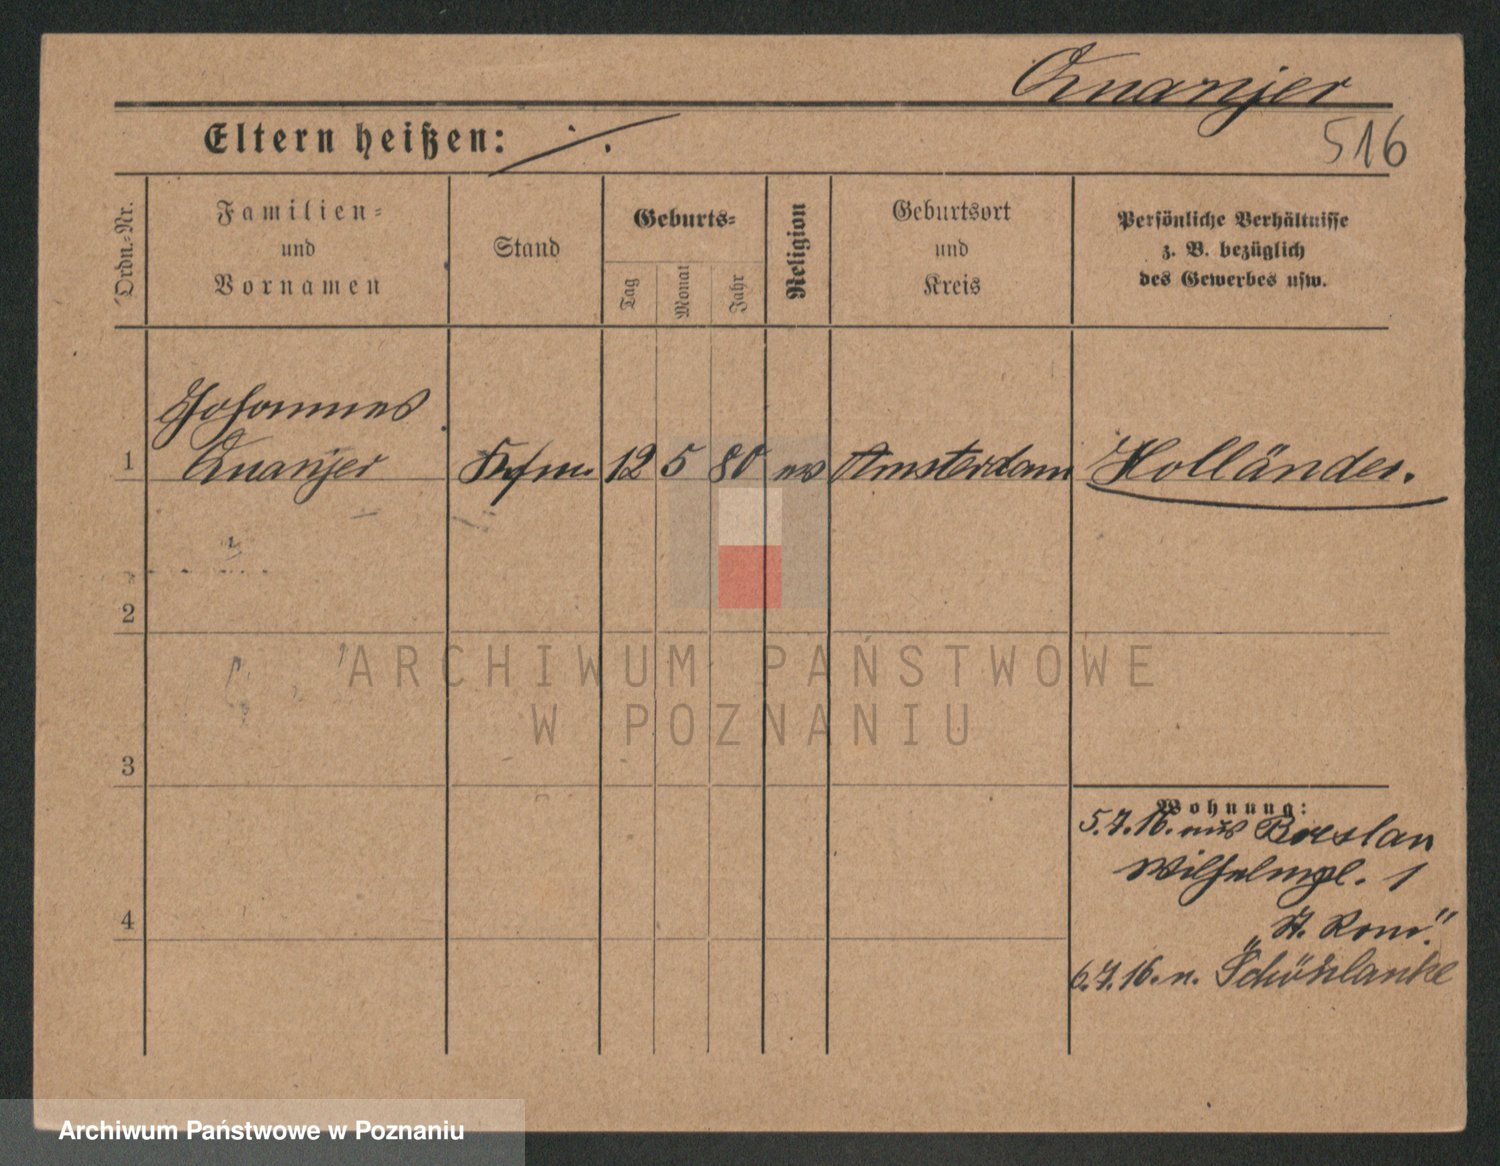 Quanjer
Eltern heißen: ./.
516
Ordn.-Nr.
Familien-
und
Vornamen
Stand
Geburts-
Tag
Monat
Jahr
Religion
Geburtsort
und
Kreis
Persönliche Verhältnisse
z. B. bezüglich
des Gewerbes usw.
Johannes
1 Quanjer Kfm. 12 5 80 ev Amsterdam Holländer.
2
3
4
Wohnung:
5.7.16. aus Breslau
Wilhelmpl. 1
„H. Rom."
6.7.16. n. Schönlanke
ARCHIWUM PAŃSTWOWE
W POZNANIU
Archiwum Państwowe w Poznaniu